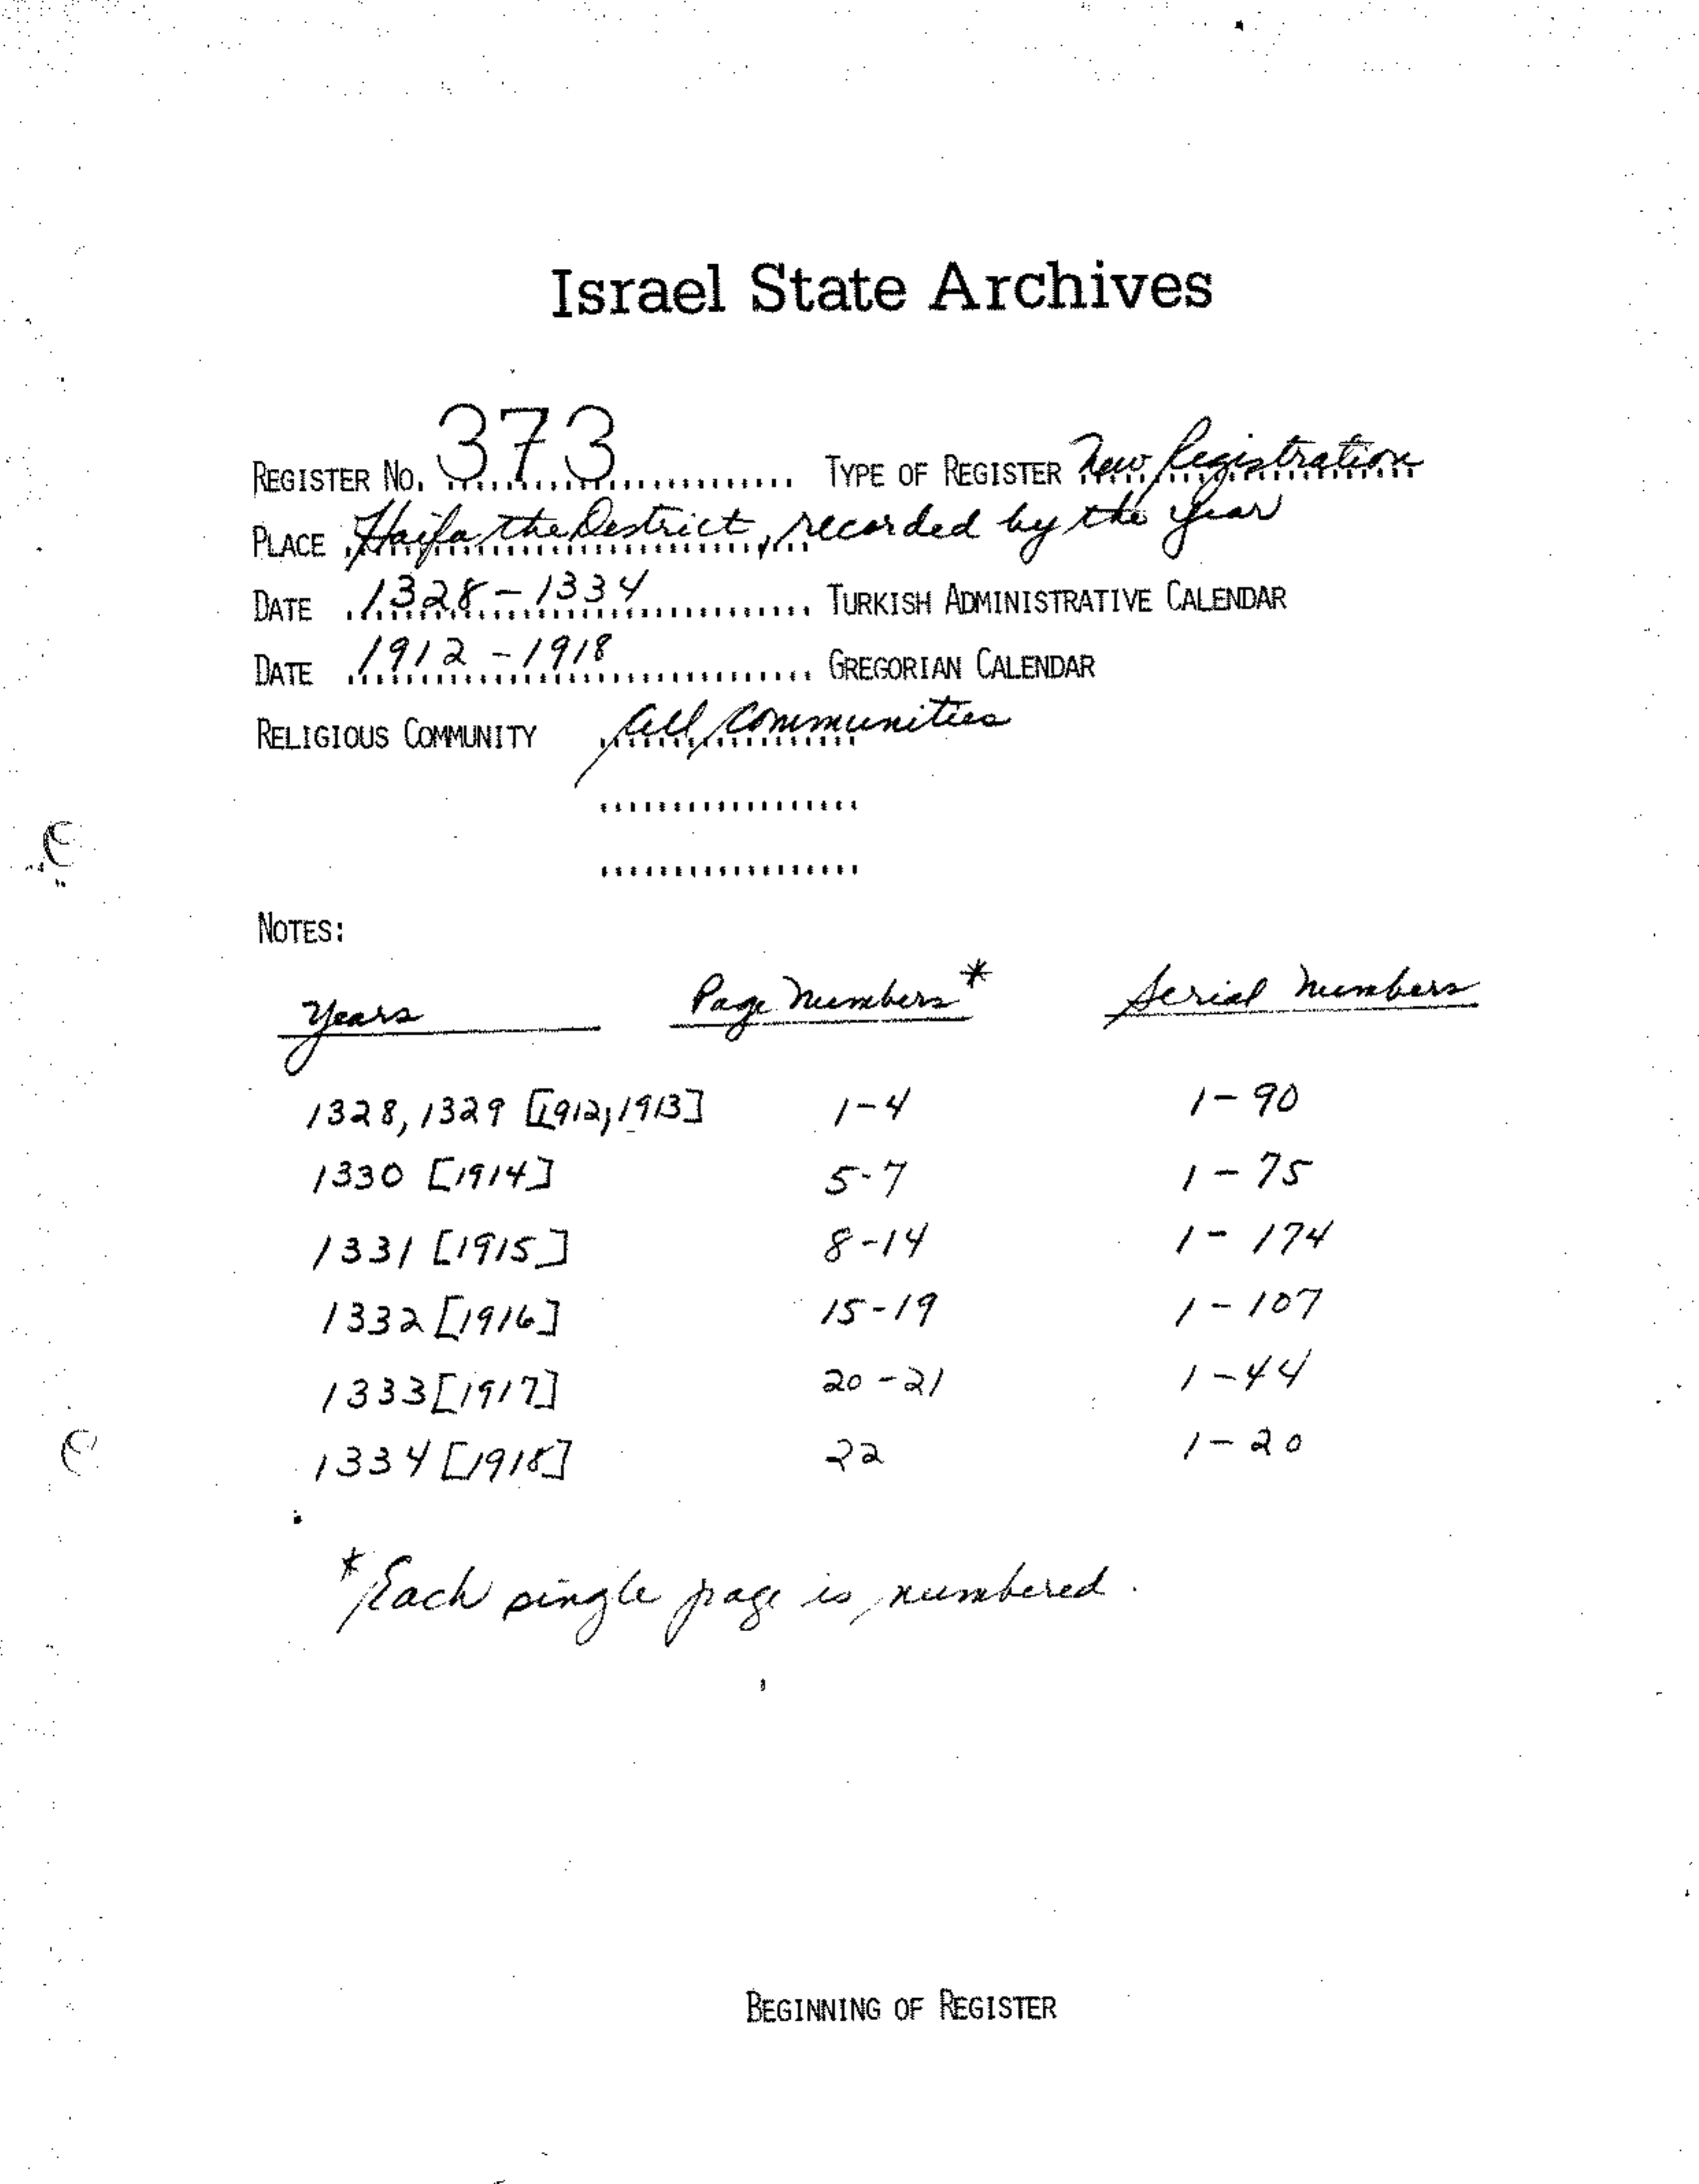 Israel State Archives
REGISTER NO. 373 TYPE OF REGISTER New Registration
PLACE Haifa the District, recorded by the year
DATE 1328-1334 TURKISH ADMINISTRATIVE CALENDAR
DATE 1912-1918 GREGORIAN CALENDAR
RELIGIOUS COMMUNITY All Communities
NOTES:
Years Page Numbers* Serial Numbers
1328, 1329 [1912, 1913] 1-4 1-90
1330 [1914] 5-7 1-75
1331 [1915] 8-14 1-174
1332 [1916] 15-19 1-107
1333 [1917] 20-21 1-44
1334 [1918] 22 1-20
*Each single page is numbered.
BEGINNING OF REGISTER